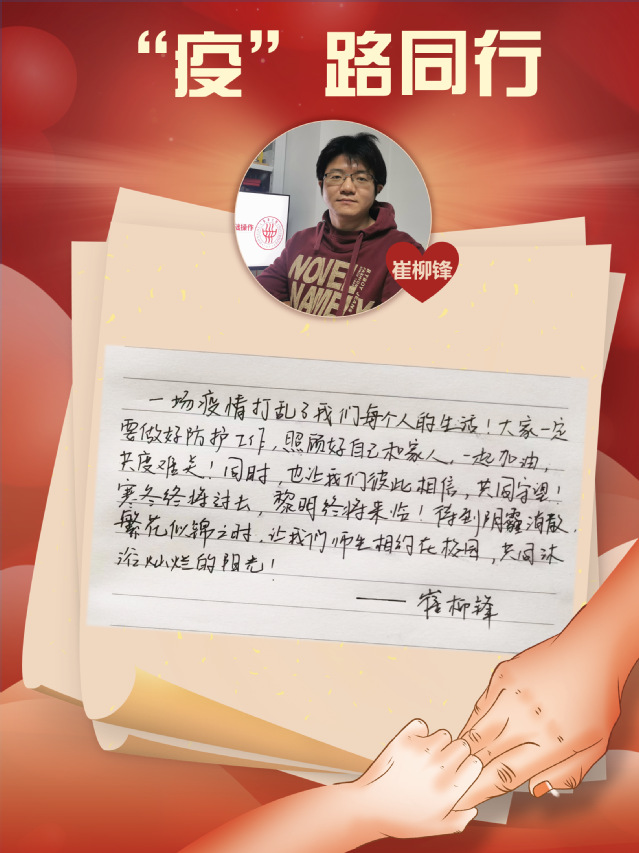 “疫”路同行
操作
NOVE
NAME
崔柳锋
一场疫情打乱了我们每个人的生活！大家一定
要做好防护工作，照顾好自己和家人，一起加油，
共度难关！同时，也让我们彼此相信，共同守望！
寒冬终将过去，黎明终将来临！待到阴霾消散，
繁花似锦之时，让我们师生相约在校园，共同沐
浴灿烂的阳光！
——崔柳锋